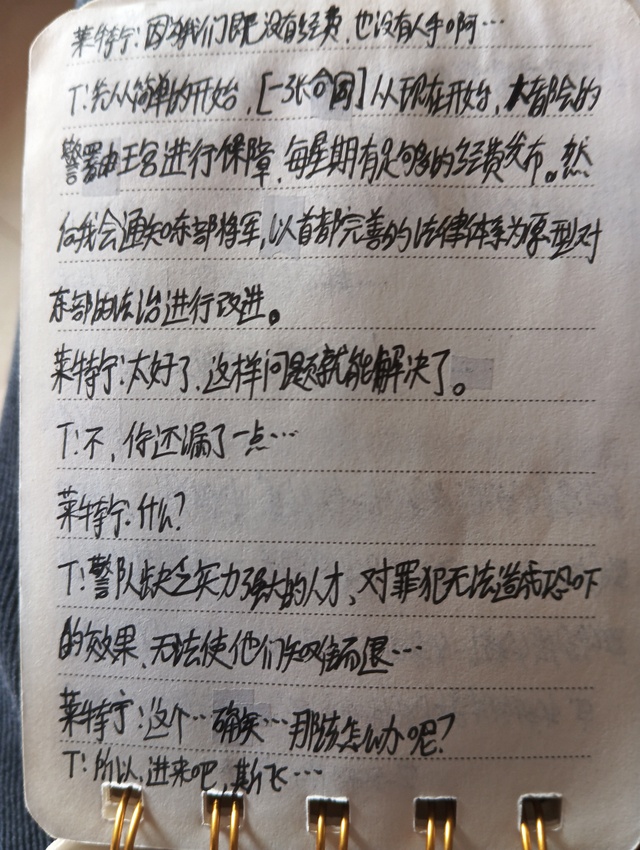 莱特宁:因为我们既没有经费,也没有人手啊…
T:先从简单的开始,[一张合同]从现在开始,大都会的
警署由王宫进行保障,每星期有足够的经费发布。然
后我会通知东部将军,以首都完善的法律体系为原型对
东部的法治进行改进。
莱特宁:太好了,这样问题就能解决了。
T:不,你还漏了一点…
莱特宁:什么?
T:警队缺乏实力强大的人才,对罪犯无法造成恐吓
的效果,无法使他们知难而退…
莱特宁:这个…确实…那该怎么办呢?
T:所以,进来吧,斯飞…